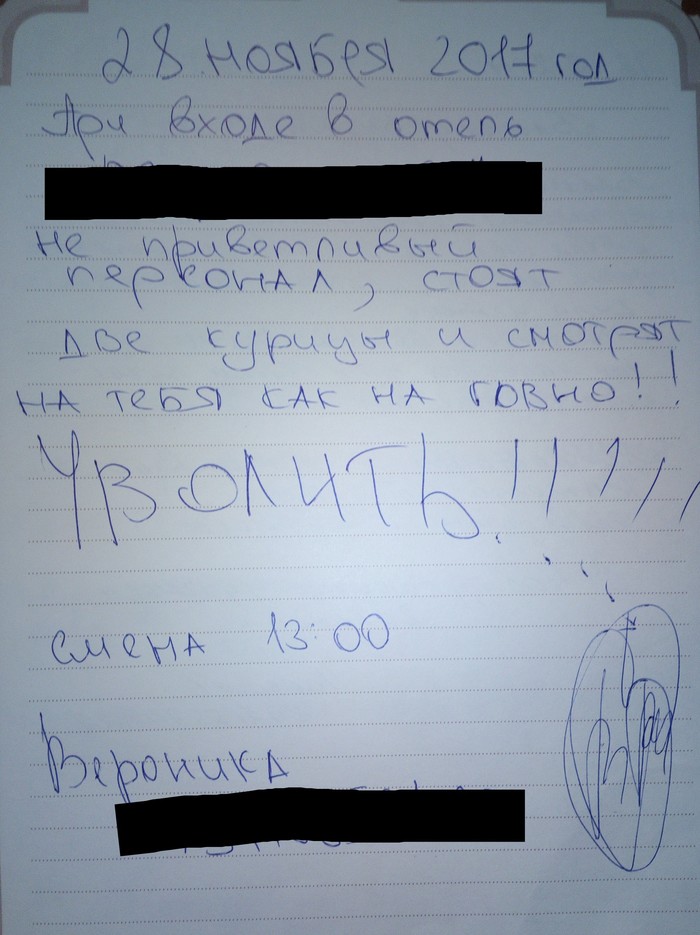 28 ноября 2017 год
При входе в отель
не приветливый
персонал, стоят
две курицы и смотрят
на тебя как на говно!!
Уволить!!!!!
смена 13:00
Вероника